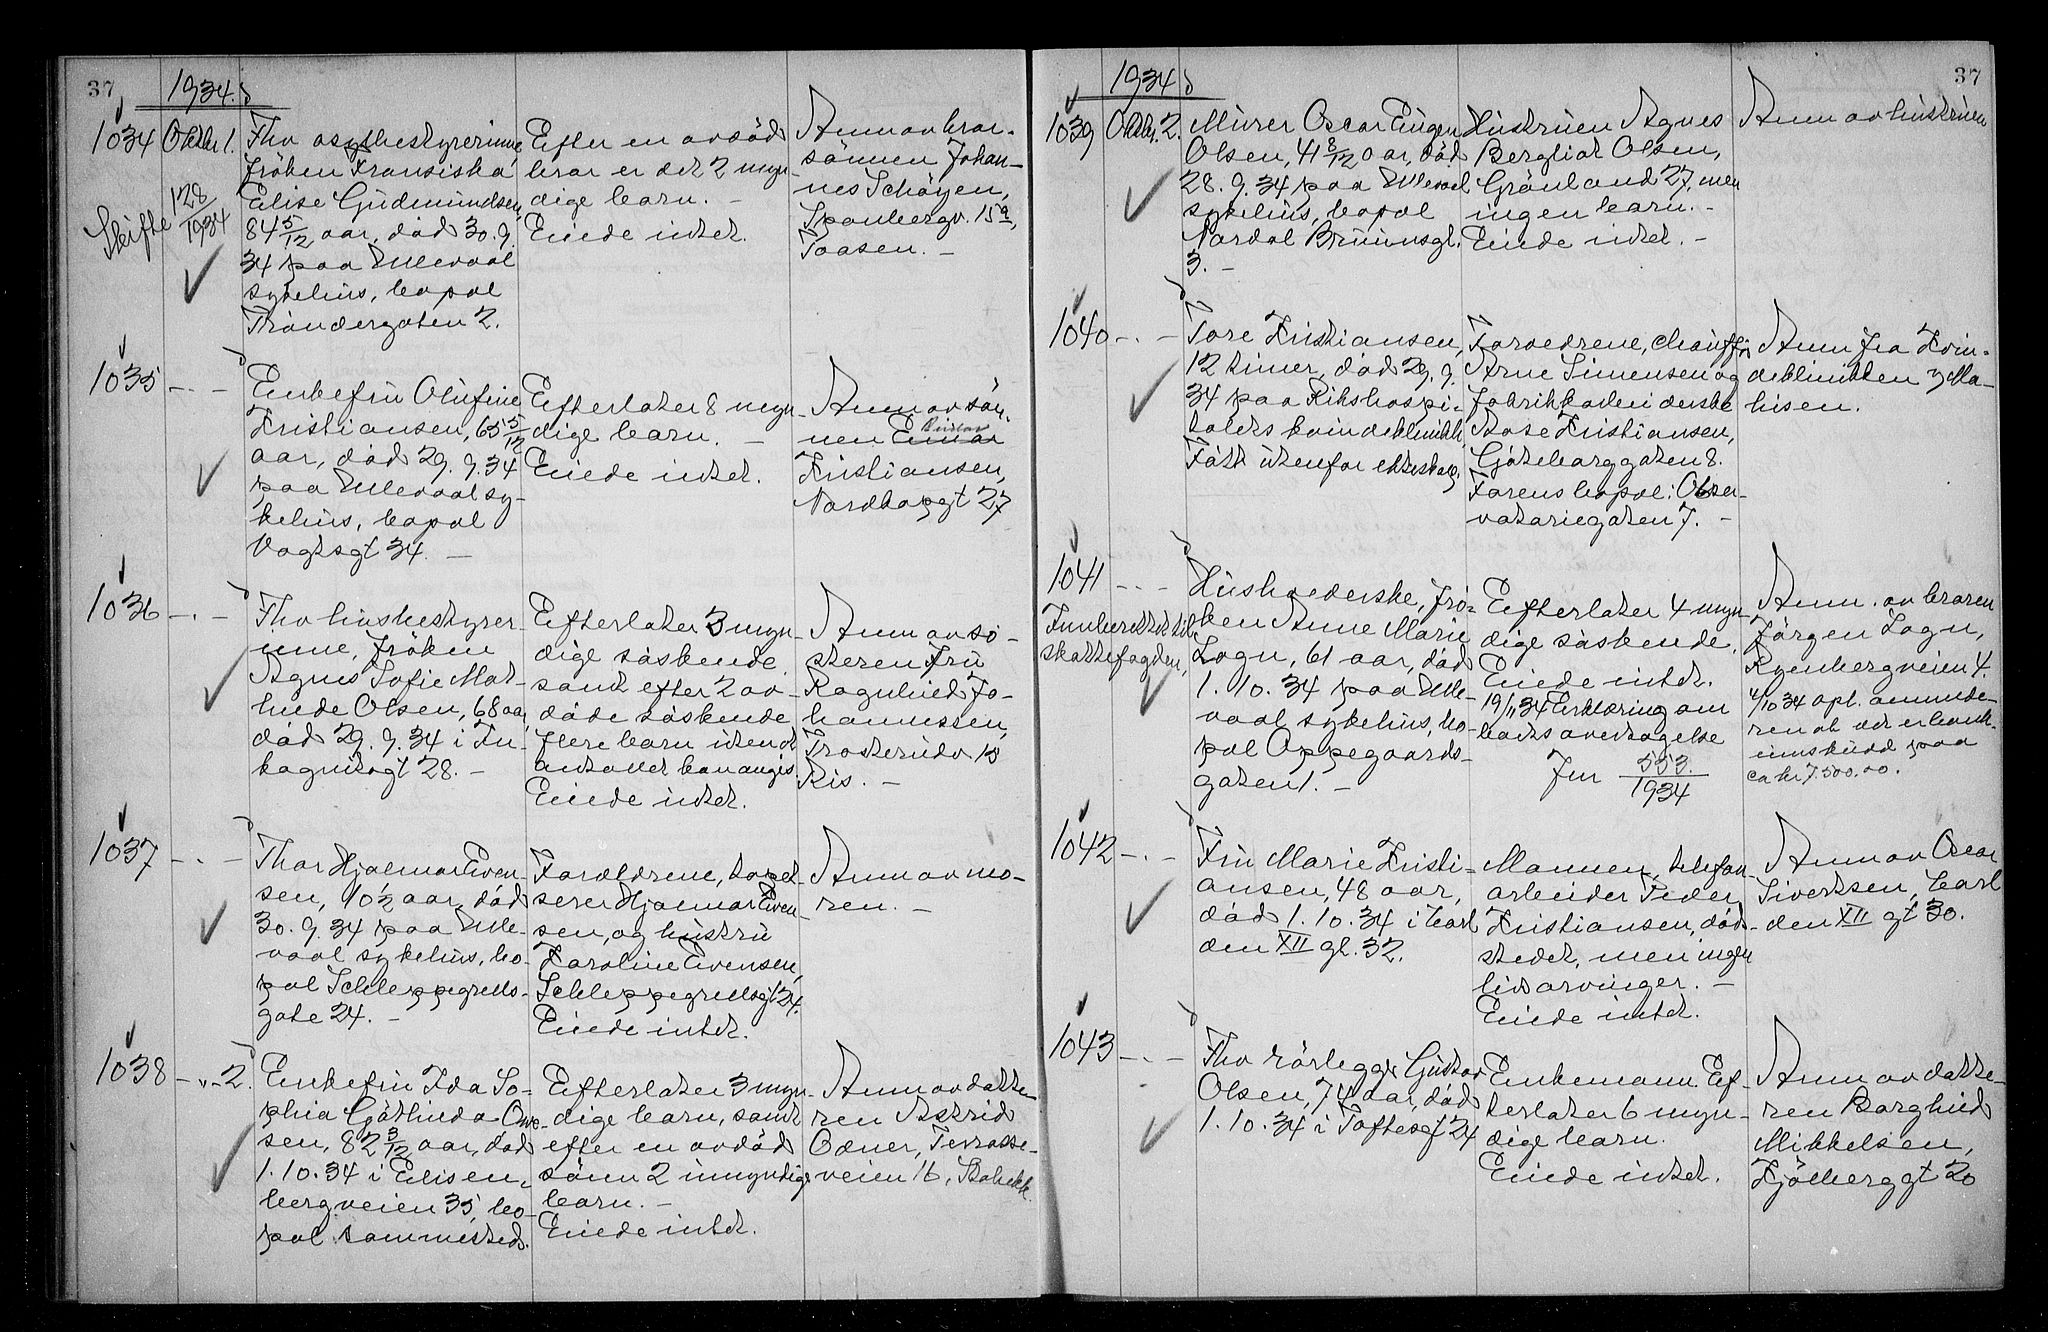 37
1934.
1034 Oktbr 1.
Skifte 128/1934
Fhv asylbestyrerinne
frøken Fransiska
Elise Gudmundsen,
84 5/12 aar, død 30.9.
34 paa Ullevaal
sykehus, bopæl
Trøndergaten 2.
Efter en avdød
bror er det 2 myn-
dige barn. -
Eiede intet.
Anm av bror-
sønnen Johan-
nes Schøyen,
Spanbergv. 15a,
Taasen. -
1035 - . -
Enkefru Olufine
Kristiansen, 65 5/12
aar, død 29.9.34
paa Ullevaal sy-
kehus, bopæl
Vogtsgt 34. -
Efterlater 8 myn-
dige barn. -
Eiede intet.
Anm av søn-
nen Einar
Kristiansen,
Nordkapgt 27
1036 - . -
Fhv husbestyrer-
inne, frøken
Agnes Sofie Mat-
hilde Olsen, 68 aar,
død 29.9.34 i Fu-
kagnitsgt 28. -
Efterlater 3 myn-
dige søskende
samt efter 2 av-
døde søskende
flere barn uten at
antallet kan angis.
Eiede intet.
Anm av sø-
steren Fru
Ragnhild Jo-
hannessen,
Trosterudv. 10
Ris. -
1037 - . -
Thor Hjalmar Even-
sen, 10 1/2 aar, død
30.9.34 paa Ulle-
vaal sykehus, bo-
pæl Schleppegrells-
gate 24. -
Forældrene, tapet-
serer Hjalmar Even-
sen, og hustru
Karoline Evensen,
Schleppegrellsgt 24.
Eiede intet.
Anm av mo-
ren. -
1038 - „ - 2.
Enkefru Ida So-
phia Gøthilda Owe-
sen, 82 3/12 aar, død
1.10.34 i Elisen-
bergveien 35, bo-
pæl sammesteds.
Efterlater 3 myn-
dige barn, samt
efter en avdød
sønn 2 umyndige
barn. -
Eiede intet.
Anm av datte-
ren Astrid
Ødner, Terrasse-
veien 16, Stabekk
37
1934
1039 Oktbr. 2.
Murer Oscar Eugen
Olsen, 41 8/12 aar, død
28.9.34 paa Ullevaal
sykehus, bopæl
Nordal Brunnsgt.
3. -
Hustruen Agnes
Bergliot Olsen,
Grønland 27, men
ingen barn. -
Eiede intet. -
Anm av hustruen
1040 - . -
Tore Kristiansen,
12 timer, død 29.9.
34 paa Rikshospi-
talets kvindeklinikk,
Født utenfor ekteskap.
Forældrene, chauffør
Arne Simensen og
fabrikkarbeiderske
Aase Kristiansen,
Gøteborggaten 8.
Farens bopæl: Obser-
vatoriegaten 7. -
Anm fra Kvin-
deklinikken v/Ma-
thisen.
1041 - . -
Innberettet til
skattefogden,
Husholderske, frø-
ken Anne Marie
Logn, 61 aar, død
1.10.34 paa Ulle-
vaal sykehus, bo-
pæl Oppegaards-
gaten 1. -
Efterlater 4 myn-
dige søskende,
Eiede intet.
19/11 34 Erklæring om
boets overtagelse
Jnr 553./1934
Anm. av broren
Jørgen Logn,
Ryenbergveien 4.
4/10 34 opl. anmelde-
ren at der er bank-
innskudd paa
ca kr 7.500.00.
1042 - . -
Fru Marie Kristi-
ansen, 48 aar,
død 1.10.34 i Carl
den XII gt. 32.
Mannen, telefon-
arbeider Peder
Kristiansen, død-
stedet, men ingen
livsarvinger. -
Eiede intet.
Anm av Oscar
Sivertsen, Carl
den XII gt 30.
1043 - . -
Fhv rørlegger Gustav
Olsen, 74 aar, død
1.10.34 i Toftesgt 24
Enkemann. Ef-
terlater 6 myn-
dige barn.
Eiede intet.
Anm av datte-
ren Borghild
Mikkelsen,
Kjølberggt 20